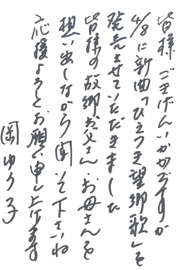 皆様ごきげんいかがですか
4/8に新曲「ひとつき望郷歌」を
発売させていただきました
皆様の故郷お父さん・お母さんを
想い出しながら聞いて下さいね
応援よろしくお願い申し上げます
岡ゆう子